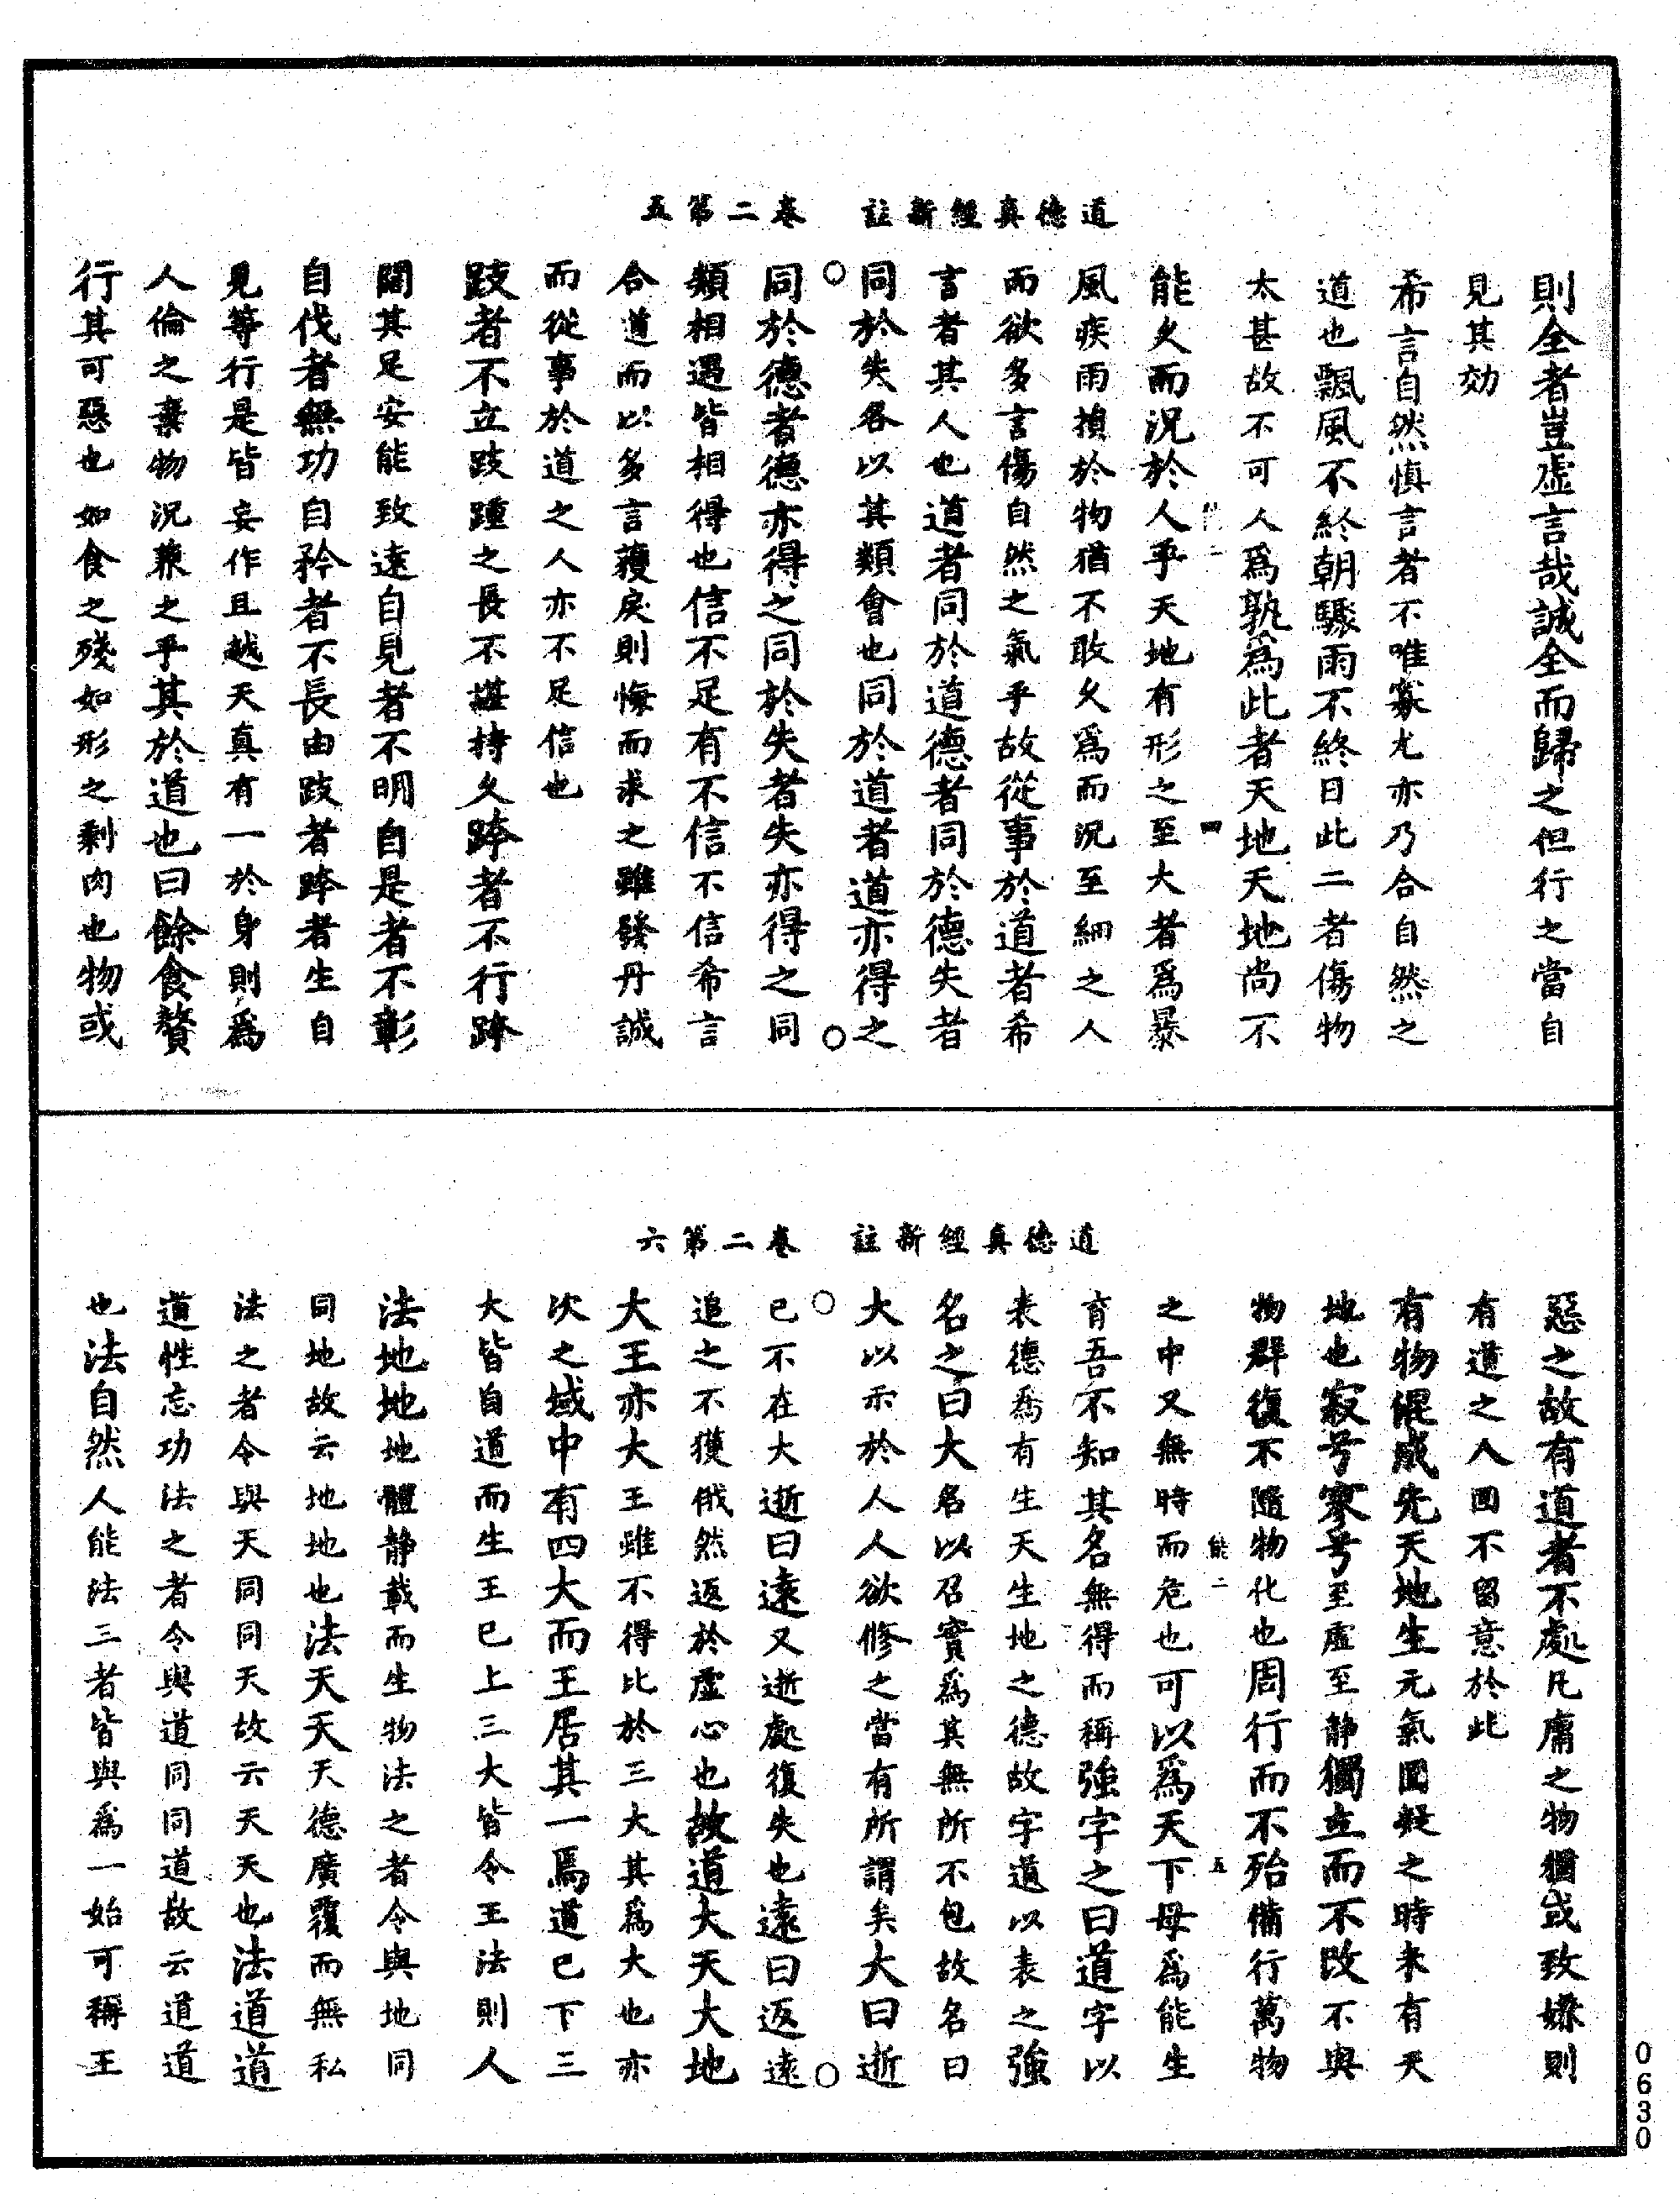 道德真經新註　卷二第五
則全者豈虛言哉誠全而歸之但行之當自
見其効
希言自然慎言者不唯寡尤亦乃合自然之
道也飄風不終朝驟雨不終日此二者傷物
太甚故不可人爲孰爲此者天地天地尚不
四
能久而況於人乎天地有形之至大者爲暴
風疾雨損於物猶不敢久爲而況至細之人
而欲多言傷自然之氣乎故從事於道者希
言者其人也道者同於道德者同於德失者
同於失各以其類會也同於道者道亦得之
同於德者德亦得之同於失者失亦得之同
類相遇皆相得也信不足有不信不信希言
合道而以多言獲戾則悔而求之雖發丹誠
而從事於道之人亦不足信也
跂者不立跂踵之長不堪持久跨者不行跨
闊其足安能致遠自見者不明自是者不彰
自伐者無功自矜者不長由跂者跨者生自
見等行是皆妄作且越天真有一於身則爲
人倫之棄物況兼之乎其於道也曰餘食贅
行其可惡也如食之殘如形之剩肉也物或
道德真經新註　卷二第六
惡之故有道者不處凡庸之物猶或致嫌則
有道之人固不留意於此
有物混成先天地生元氣圓凝之時未有天
地也寂兮寥兮至虛至静獨立而不改不與
物群復不隨物化也周行而不殆備行萬物
能二　五
之中又無時而危也可以爲天下母爲能生
育吾不知其名無得而稱強字之曰道字以
表德爲有生天生地之德故字道以表之強
名之曰大名以召實爲其無所不包故名曰
大以示於人人欲修之當有所謂矣大曰逝
已不在大逝曰遠又逝處復失也遠曰返遠
追之不獲俄然返於虛心也故道大天大地
大王亦大王雖不得比於三大其爲大也亦
次之域中有四大而王居其一焉道已下三
大皆自道而生王已上三大皆令王法則人
法地地地體静載而生物法之者令與地同
同地故云地地也法天天天德廣覆而無私
法之者令與天同同天故云天天也法道道
道性忘功法之者令與道同同道故云道道
也法自然人能法三者皆與爲一始可稱王
0630